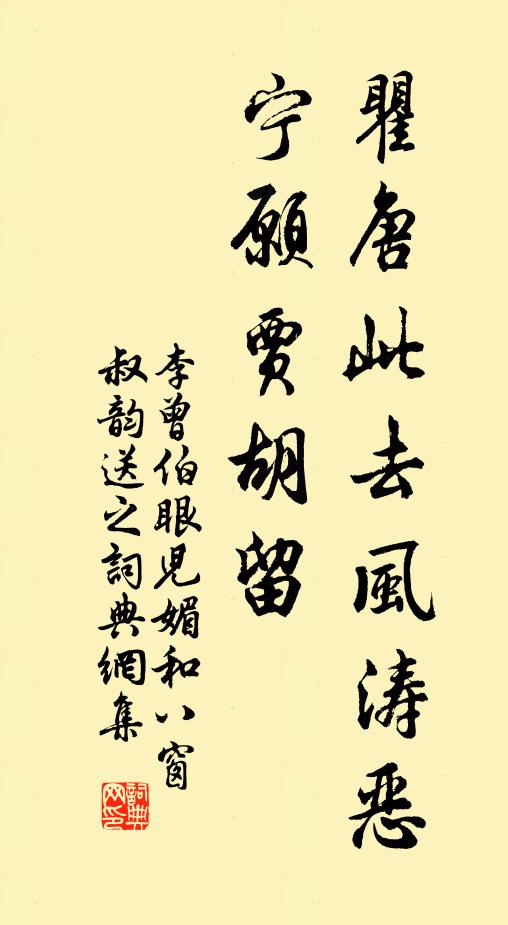 瞿唐此去風涛惡
宁願賈胡留
李曾伯眼児媚和八窗
叔韵送之詞典網集
詞典网印